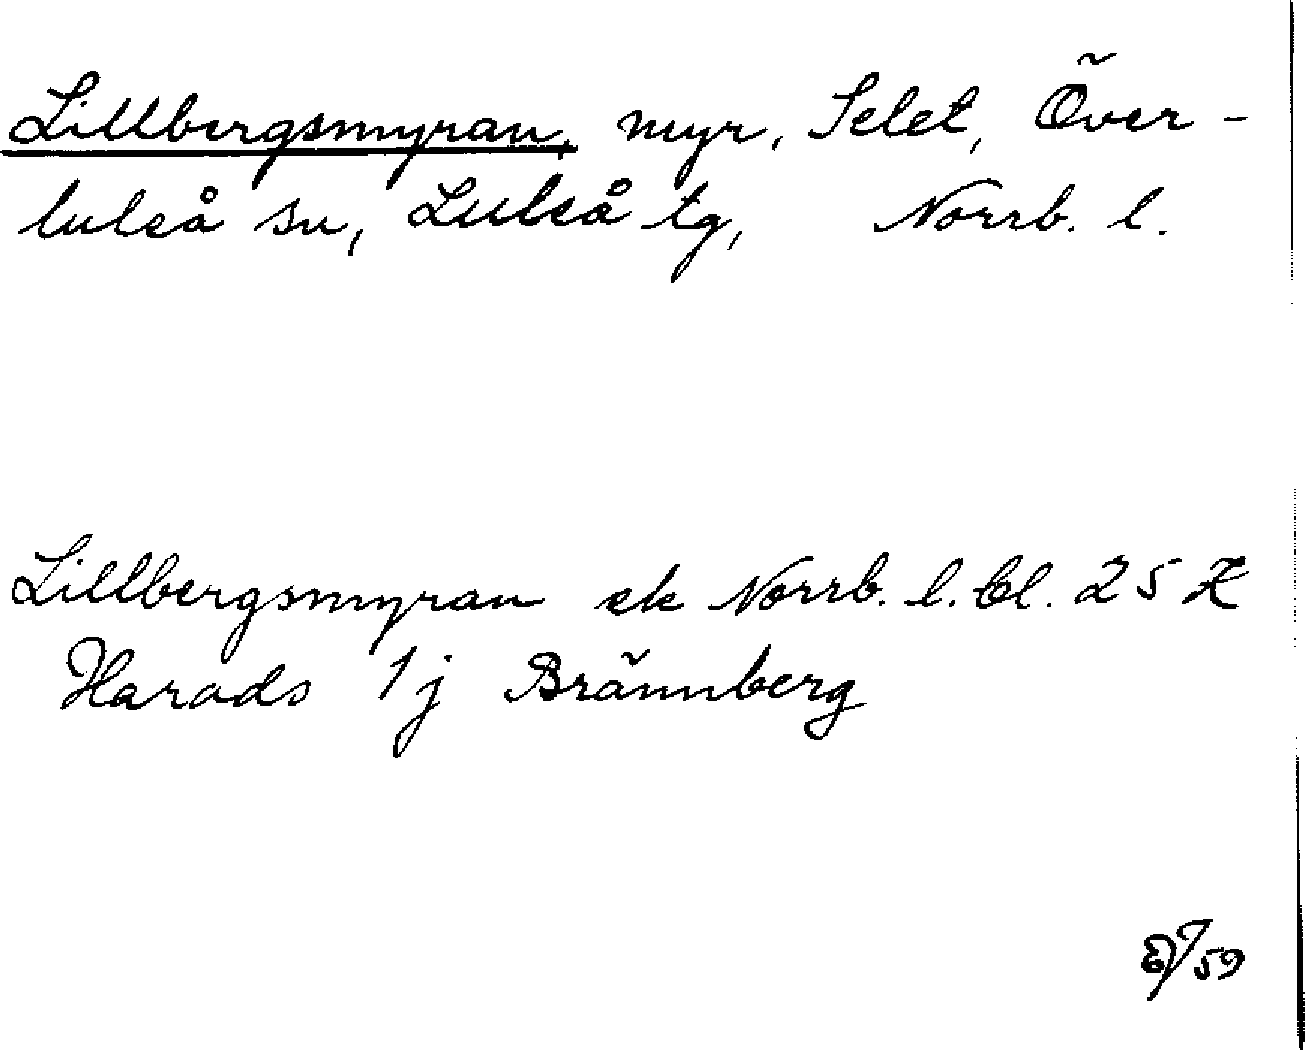 Lillbergsmyran, myr, Selet, Över-
luleå sn, Luleå tg, Norrb. l.
Lillbergsmyran ek Norrb. l. bl. 25 K
Harads 1j Brännberg
59